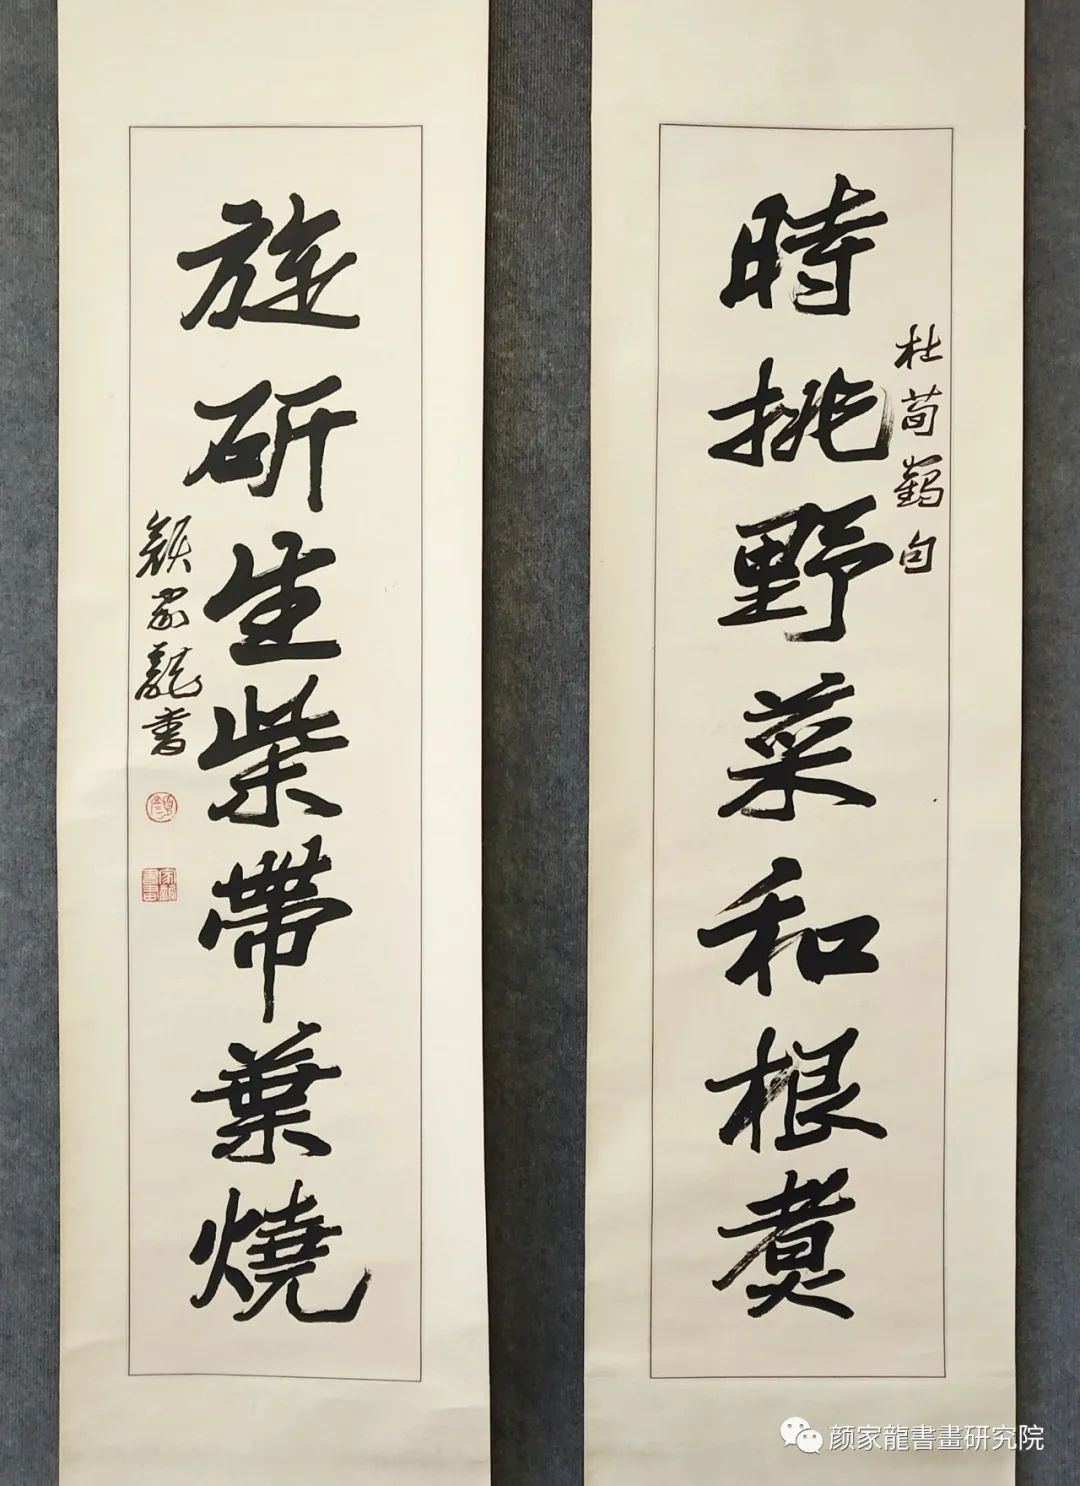 時挑野菜和根煮
杜荀鶴句
旋斫生柴帶葉燒
顏家龍書
家龍書畫
颜家龍書畫研究院